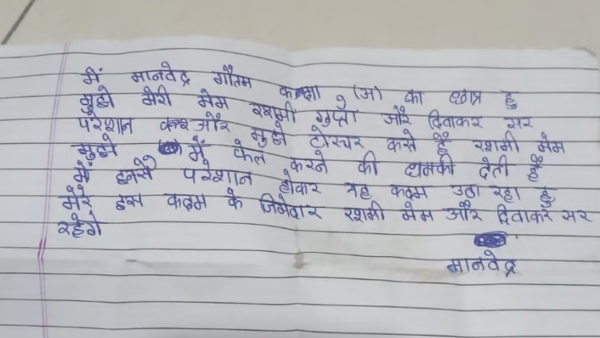 में मानवेद्र गौतम कक्षा 9 (ज) का छात्र हु
मुझे मेरी मेम रशमी गुप्ता और दिवाकर सर
परेशान और मुझे टोरचर करते है रशमी मेम
मुझे में फेल करने की धमकी देती हैं
में इनसे परेशान होकर यह कदम उठा रहा हु
मेरे इस कदम के जिमेवार रशमी मेम और दिवाकर सर
रहेगे
मानवेद्र